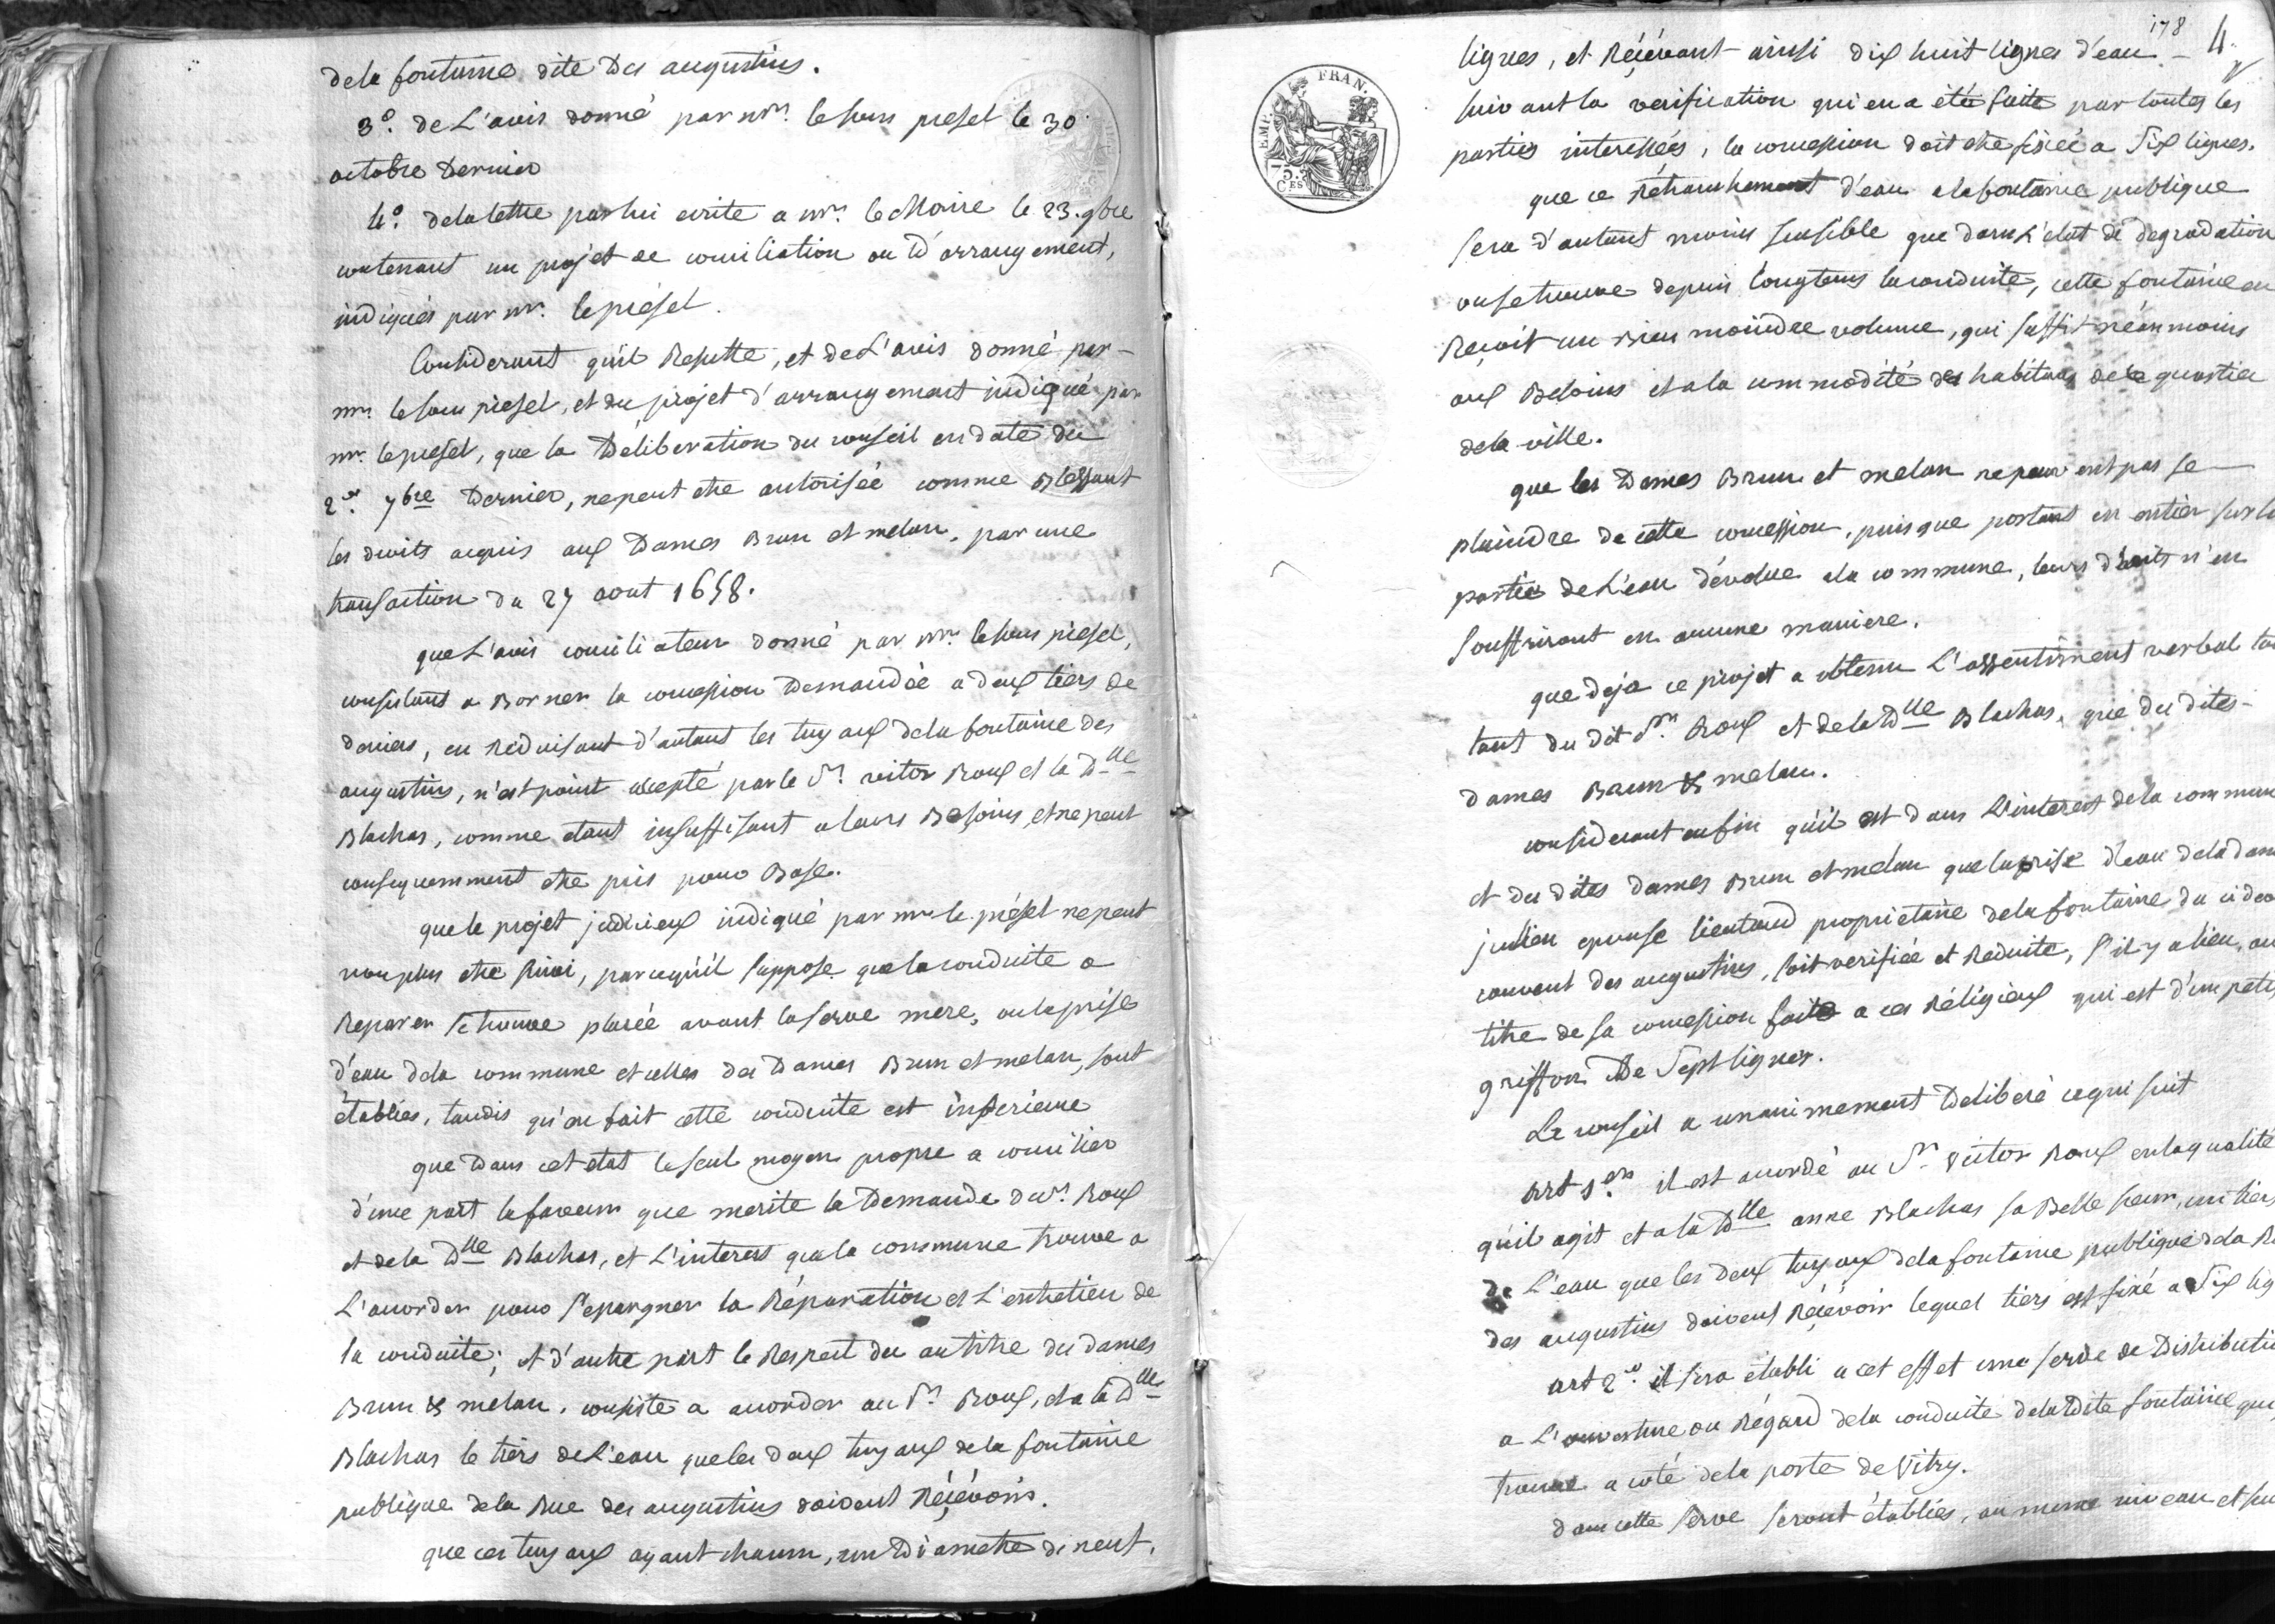 dela fontaine dite Des augustins.
3°. de L'avis donné par mr. le sous prefet le 30
octobre Dernier
4°. dela lettre par lui ecrite a mr. le Maire le 23. 9bre
contenant un projet de conciliation ou D'arrangement,
indiqués par mr. le préfet.
Considerant qu'il Resulte, et de L'avis donné par
mr. le sous préfet, et du projet d'arrangement indiqué par
mr. le prefet, que la Déliberation du conseil en date du
2er. 7bre Dernier, ne peut etre autorisée comme Blessant
les droits acquis aux Dames Brun et melan, par une
transaction du 27 aout 1658.
que L'avis conciliateur donné par mr. le sous préfet,
consistant a Borner la concession Demandée a deux tiers de
deniers, en Réduisant d'autant les tuyaux dela fontaine des
augustins, n'est point accepté par le Sr. victor Roux et la Dlle
Blachas, comme etant insuffisant a leurs Besoins, et ne peut
consequemment etre pris pour Base.
que le projet judicieux indiqué par mr. le préfet ne peut
non plus etre suivi, parcequ'il suppose que la conduite a
Reparer se trouve placée avant la serve mere, ou la prise
d'eau dela commune et celles des Dames Brun et melan, sont
établies, tandis qu'en fait cette conduite est inferieure
que Dans cet etat le seul moyen propre a concilier
d'une part la faveur que merite la Demande du Sr. Roux
et de la Dlle Blachas, et L'interest que la commune trouve a
L'accorder pour s'epargner la Réparation et L'entretien de
la conduite; et d'autre part le Respect du au titre des dames
Brun & melan, consiste a accorder au Sr. Roux, et a la Dlle
Blachas le tiers de L'eau que les deux tuyaux de la fontaine
publique dela Rue des augustins doivent Réçévoir.
que ces tuyaux ayant chacun, un Diametre de neuf,
178
4
lignes, et Réçévant ainsi dix huit lignes d'eau
suivant la verification qui en a été faite par toutes les
parties interessées, la concession doit etre fixée a Six lignes.
que ce Rétranchement d'eau a la fontaine publique
sera d'autant moins sensible que dans L'etat de degradation
ou se trouve depuis longtems la conduite, cette fontaine en
Reçoit un Bien moindre volume, qui suffit néanmoins
aux Besoins et a la commodité des habitans de ce quartier
dela ville.
que les Dames Brun et melan ne peuvent pas se
plaindre de cette concession, puisque portant en entier sur la
partie de L'eau dévolue a la commune, leurs droits n'en
souffriront en aucune maniere.
que deja ce projet a obtenu L'assentiment verbal
tant du dit Sr. Roux et de la Dlle Blachas, que des dites
dames Brun & melan.
considerant enfin qu'il est dans L'interest dela commune
et des dites dames Brun et melan que la prise d'eau dela dame
jullien epouse lieutaud proprietaire dela fontaine du ci devant
couvent des augustins, soit verifiée et Réduite, s'il y a lieu, au
titre de sa concession faite a ces Réligieux qui est d'un petit
griffon De Sept lignes.
Le conseil a unanimement Deliberé ce qui suit
Art 1er. il est accordé au Sr. Victor Roux en la qualité
qu'il agit et a la Dlle anne Blachas sa Belle sœur, un tiers
de L'eau que les deux tuyaux dela fontaine publique dela Rue
des augustins doivent Réçévoir lequel tiers est fixé a Six lig
art 2e. il sera établi a cet effet une serve de Distribution
a L'ouverture ou Régard dela conduite dela dite fontaine qui
trouve a coté dela porte de Vitry.
dans cette serve seront établies, au meme niveau et sur
EMP. FRAN.
75.
CES